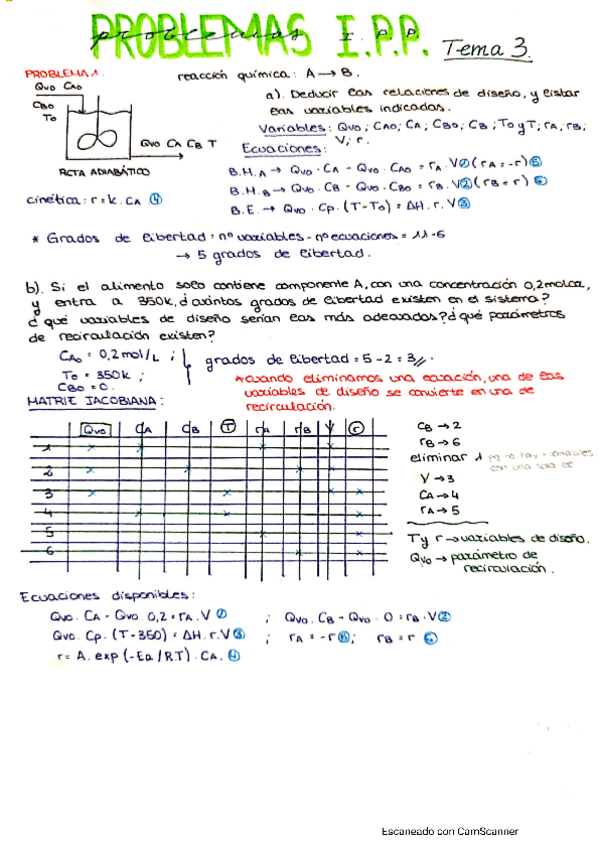 PROBLEMAS I.P.P. Tema 3.
problemas I. P. P.
PROBLEMA 1. reacción química: A → B.
Qvo CAo
CBo
To
a). Deducir las relaciones de diseño, y listar
las variables indicadas.
Variables: Qvo; CAo; CA; CBo; CB; To y T; rA; rB;
V; r.
Ecuaciones:
Qvo CA CB T
RCTA ADIABÁTICO
B.M.A → Qvo · CA - Qvo · CAo = rA · V ① (rA = -r) ⑤
B.M.B → Qvo · CB - Qvo · CBo = rB · V ② (rB = r) ⑥
cinética: r = k · CA ④
B.E. → Qvo · Cp · (T - To) = ΔH · r · V ③
* Grados de libertad = nº variables - nº ecuaciones = 11 - 6
→ 5 grados de libertad.
b). Si el alimento solo contiene componente A, con una concentración 0,2 mol/L,
y entra a 350k, ¿cuántos grados de libertad existen en el sistema?
¿qué variables de diseño serían las más adecuadas? ¿qué parámetros
de recirculación existen?
CAo = 0,2 mol/L ;
To = 350k ;
CBo = 0.
grados de libertad = 5 - 2 = 3 //.
* cuando eliminamos una ecuación, una de las
variables de diseño se convierte en una de
recirculación.
MATRIZ JACOBIANA:
Qvo CA CB T rA rB V r
1 x x x x
2 x x x x
3 x x x x
4 x x x
5 x x
6 x x
CB → 2
rB → 6
eliminar 1 pq no hay + variables
con una sola ec
V → 3
CA → 4
rA → 5
T y r → variables de diseño.
Qvo → parámetro de
recirculación.
Ecuaciones disponibles:
Qvo · CA - Qvo 0,2 = rA · V ① ; Qvo · CB - Qvo · 0 = rB · V ②
Qvo · Cp · (T - 350) = ΔH · r · V ③ ; rA = -r ⑤ ; rB = r ⑥
r = A · exp (-Ea / R.T) · CA. ④
Escaneado con CamScanner